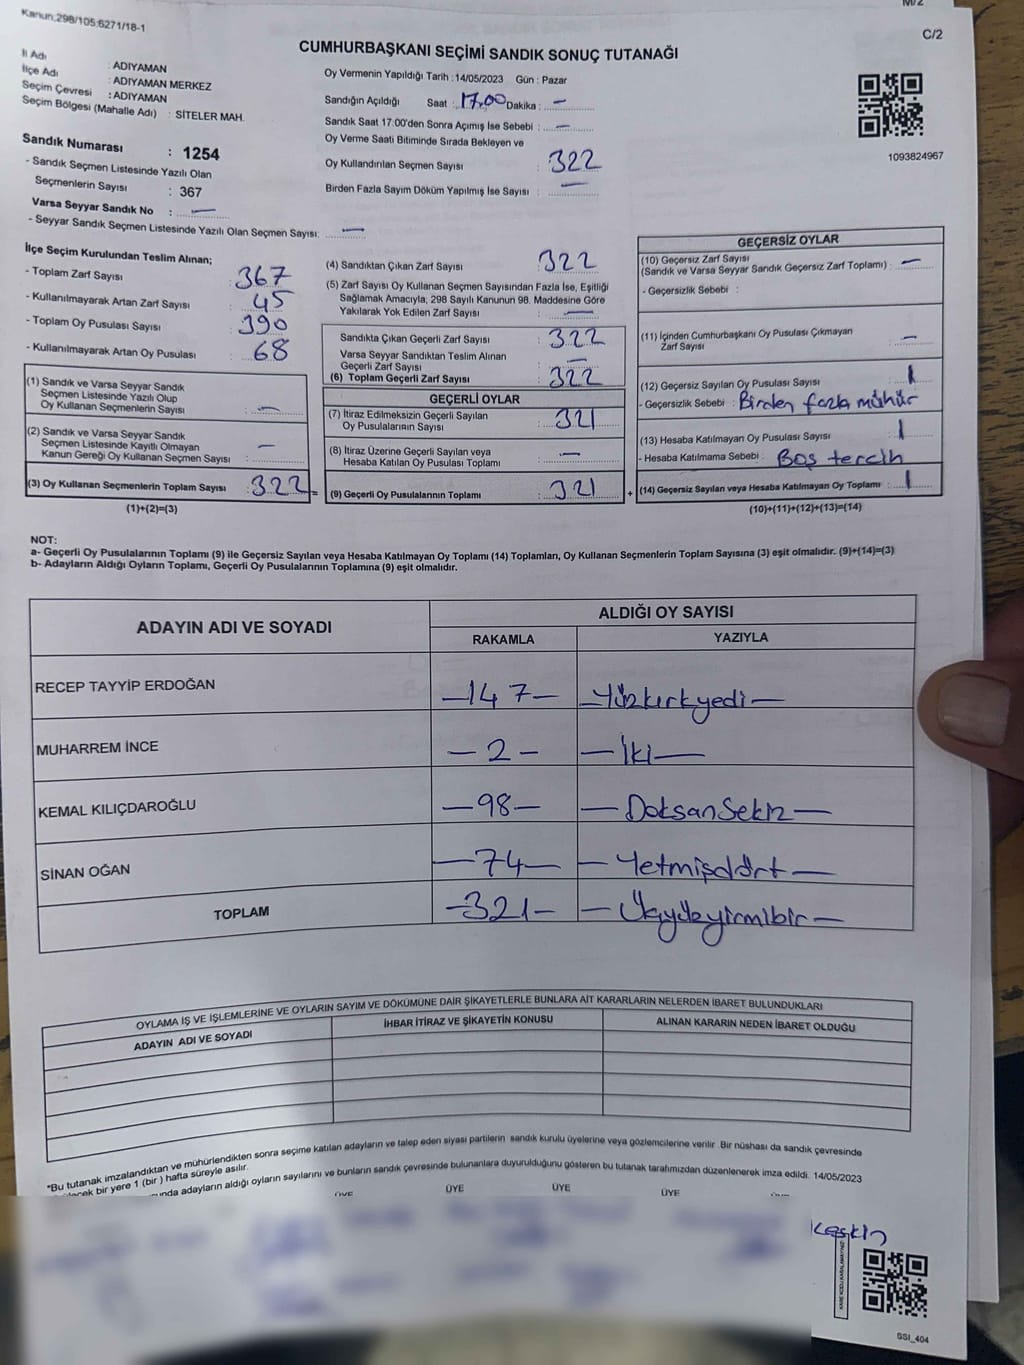 Kanun:298/105;6271/18-1
C/2
CUMHURBAŞKANI SEÇİMİ SANDIK SONUÇ TUTANAĞI
İl Adı : ADIYAMAN
İlçe Adı : ADIYAMAN MERKEZ
Seçim Çevresi : ADIYAMAN
Seçim Bölgesi (Mahalle Adı) : SİTELER MAH.
Sandık Numarası : 1254
- Sandık Seçmen Listesinde Yazılı Olan
Seçmenlerin Sayısı : 367
Varsa Seyyar Sandık No : —
- Seyyar Sandık Seçmen Listesinde Yazılı Olan Seçmen Sayısı: —
Oy Vermenin Yapıldığı Tarih :14/05/2023 Gün : Pazar
Sandığın Açıldığı Saat : 17.00 Dakika : —
Sandık Saat 17:00'den Sonra Açımış İse Sebebi : —
Oy Verme Saati Bitiminde Sırada Bekleyen ve
Oy Kullandırılan Seçmen Sayısı : 322
Birden Fazla Sayım Döküm Yapılmış İse Sayısı : —
1093824967
İlçe Seçim Kurulundan Teslim Alınan;
- Toplam Zarf Sayısı : 367
- Kullanılmayarak Artan Zarf Sayısı : 45
- Toplam Oy Pusulası Sayısı : 390
- Kullanılmayarak Artan Oy Pusulası : 68
(1) Sandık ve Varsa Seyyar Sandık
Seçmen Listesinde Yazılı Olup
Oy Kullanan Seçmenlerin Sayısı : —
(2) Sandık ve Varsa Seyyar Sandık
Seçmen Listesinde Kayıtlı Olmayan
Kanun Gereği Oy Kullanan Seçmen Sayısı : —
(3) Oy Kullanan Seçmenlerin Toplam Sayısı : 322 =
(1)+(2)=(3)
(4) Sandıktan Çıkan Zarf Sayısı : 322
(5) Zarf Sayısı Oy Kullanan Seçmen Sayısından Fazla İse, Eşitliği
Sağlamak Amacıyla; 298 Sayılı Kanunun 98. Maddesine Göre
Yakılarak Yok Edilen Zarf Sayısı : —
Sandıkta Çıkan Geçerli Zarf Sayısı : 322
Varsa Seyyar Sandıktan Teslim Alınan
Geçerli Zarf Sayısı : —
(6) Toplam Geçerli Zarf Sayısı : 322
GEÇERLİ OYLAR
(7) İtiraz Edilmeksizin Geçerli Sayılan
Oy Pusulalarının Sayısı : 321
(8) İtiraz Üzerine Geçerli Sayılan veya
Hesaba Katılan Oy Pusulası Toplamı : —
(9) Geçerli Oy Pusulalarının Toplamı : 321 +
GEÇERSİZ OYLAR
(10) Geçersiz Zarf Sayısı
(Sandık ve Varsa Seyyar Sandık Geçersiz Zarf Toplamı) : —
- Geçersizlik Sebebi :
(11) İçinden Cumhurbaşkanı Oy Pusulası Çıkmayan
Zarf Sayısı : —
(12) Geçersiz Sayılan Oy Pusulası Sayısı : 1
- Geçersizlik Sebebi : Birden fazla mühür
(13) Hesaba Katılmayan Oy Pusulası Sayısı : 1
- Hesaba Katılmama Sebebi : Boş tercih
(14) Geçersiz Sayılan veya Hesaba Katılmayan Oy Toplamı : 1
(10)+(11)+(12)+(13)=(14)
NOT:
a- Geçerli Oy Pusulalarının Toplamı (9) ile Geçersiz Sayılan veya Hesaba Katılmayan Oy Toplamı (14) Toplamları, Oy Kullanan Seçmenlerin Toplam Sayısına (3) eşit olmalıdır. (9)+(14)=(3)
b- Adayların Aldığı Oyların Toplamı, Geçerli Oy Pusulalarının Toplamına (9) eşit olmalıdır.
ADAYIN ADI VE SOYADI
ALDIĞI OY SAYISI
RAKAMLA YAZIYLA
RECEP TAYYİP ERDOĞAN —147— —Yüzkırkyedi—
MUHARREM İNCE —2— —İki—
KEMAL KILIÇDAROĞLU —98— —DoksanSekiz—
SİNAN OĞAN —74— —Yetmişdört—
TOPLAM —321— —Üçyüzyirmibir—
OYLAMA İŞ VE İŞLEMLERİNE VE OYLARIN SAYIM VE DÖKÜMÜNE DAİR ŞİKAYETLERLE BUNLARA AİT KARARLARIN NELERDEN İBARET BULUNDUKLARI
ADAYIN ADI VE SOYADI İHBAR İTİRAZ VE ŞİKAYETİN KONUSU ALINAN KARARIN NEDEN İBARET OLDUĞU
*Bu tutanak imzalandıktan ve mühürlendikten sonra seçime katılan adayların ve talep eden siyasi partilerin sandık kurulu üyelerine veya gözlemcilerine verilir Bir nüshası da sandık çevresinde
bir yere 1 (bir ) hafta süreyle asılır.
adayların aldığı oyların sayılarını ve bunların sandık çevresinde bulunanlara duyurulduğunu gösteren bu tutanak tarafımızdan düzenlenerek imza edildi. 14/05/2023
ÜYE ÜYE ÜYE ÜYE
Keskin
SSI_404